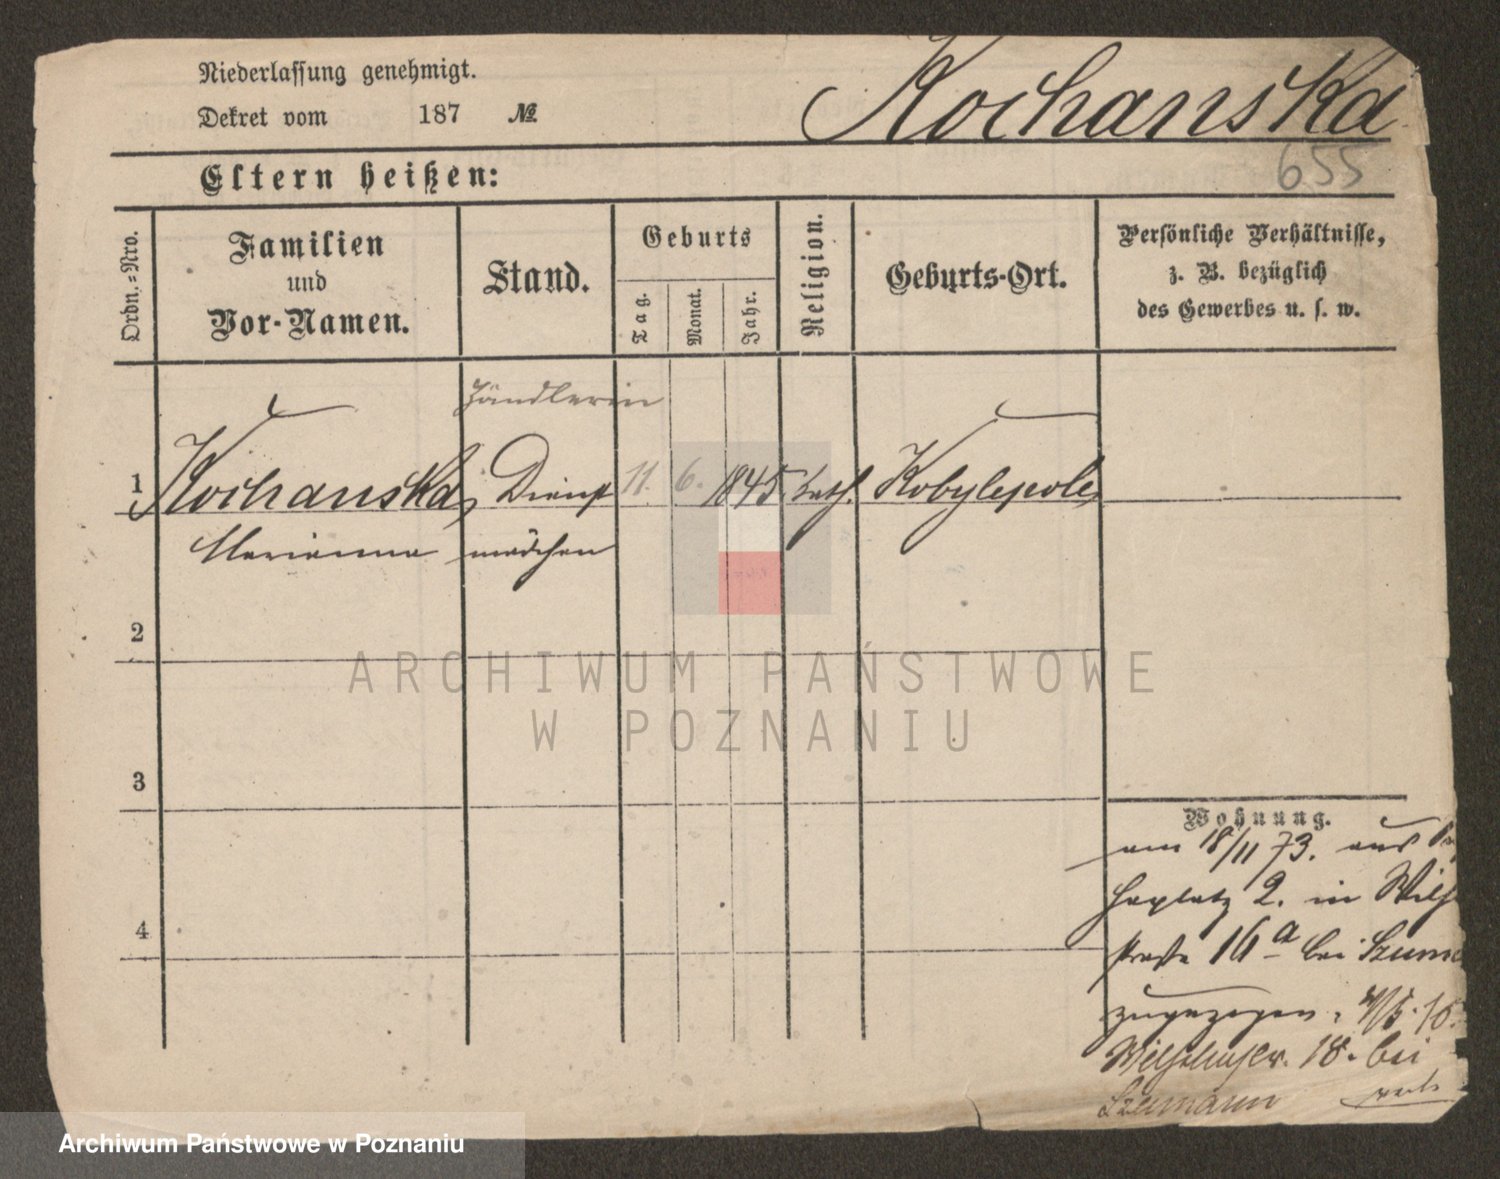 Niederlassung genehmigt.
Kochanska
Dekret vom 187 №
Eltern heißen:
655
Ordn.-Nro.
Familien
und
Vor-Namen.
Stand.
Geburts
Tag.
Monat.
Jahr.
Religion.
Geburts-Ort.
Persönliche Verhältnisse,
z. B. bezüglich
des Gewerbes u. s. w.
Händlerin
1 Kochanska, Dienst 11. 6. 1845 kath. Kobylepole
Marianna mädchen
2
ARCHIWUM PAŃSTWOWE
W POZNANIU
3
Wohnung.
am 18/11 73. aus
2. in Wilh
straße 16 a bei
zugezogen,
18. bei
4
Archiwum Państwowe w Poznaniu